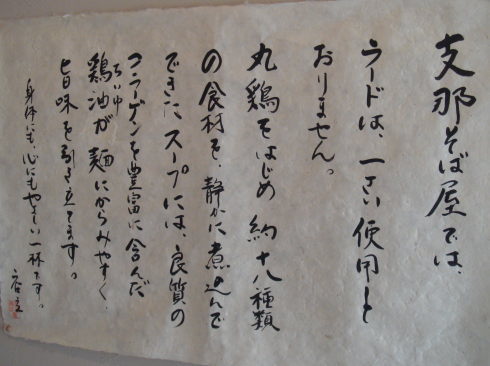 支那そば屋では、
ラードは、一さい使用し
おりません。
丸鶏をはじめ約十八種類
の食材を、静かに煮込んで
できたスープには、良質の
コラーゲンを豊富に含んだ
鶏油が麺にからみやすく、
ちいゆ
旨味を引き立てます。
身体にも、心にもやさしい一杯です。